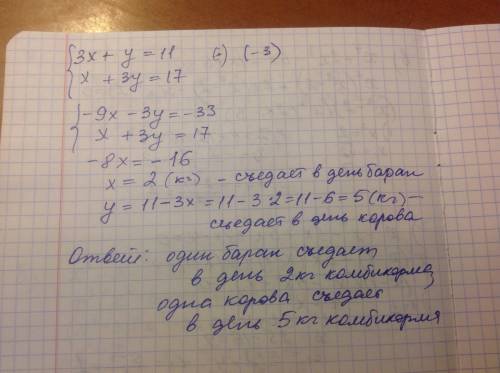 {3x + y = 11 (·) (-3)
x + 3y = 17
{-9x - 3y = -33
x + 3y = 17
-8x = -16
x = 2 (кг) - съедает в день баран
y = 11 - 3x = 11 - 3·2 = 11 - 6 = 5 (кг) -
съедает в день корова
Ответ: один баран съедает
в день 2 кг комбикорма,
одна корова съедает
в день 5 кг комбикорма